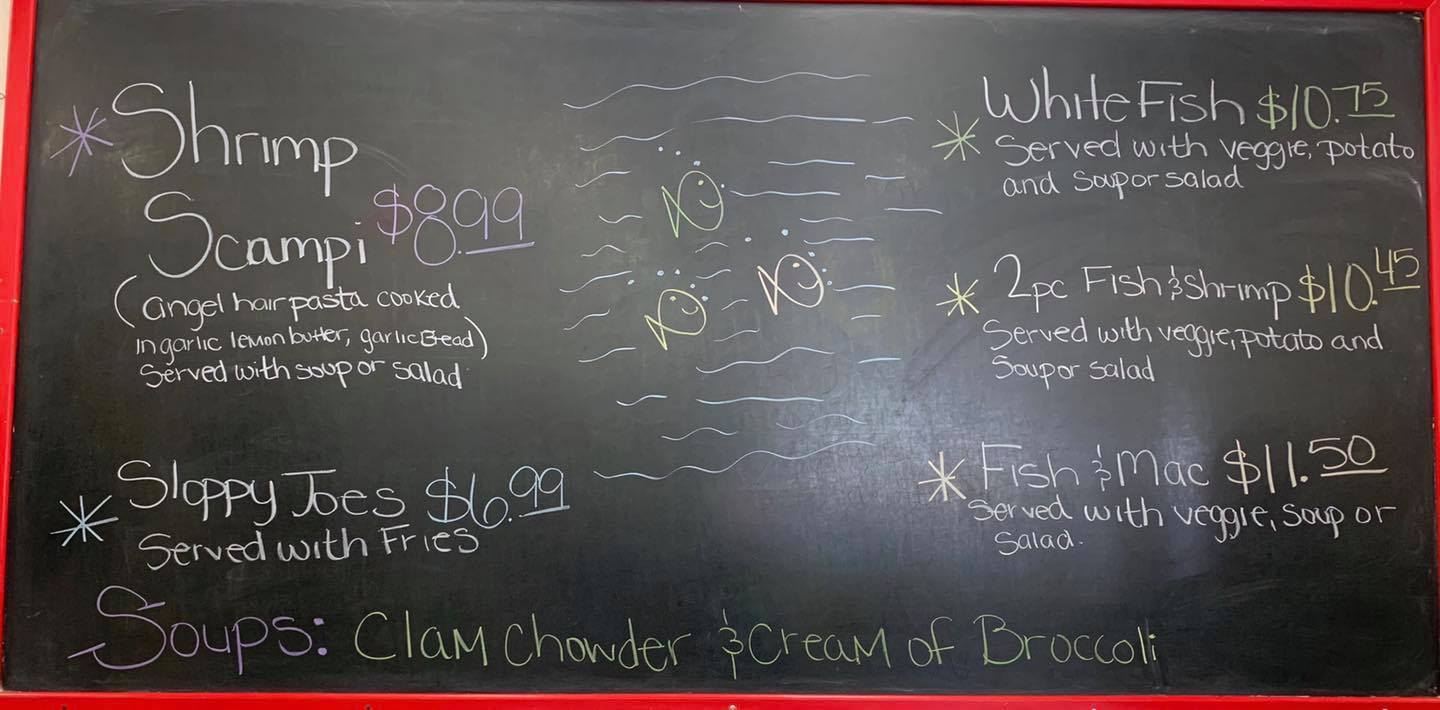 Shrimp
Scampi $8.99
(angel hair pasta cooked
in garlic lemon butter, garlic Bread)
Served with soup or salad
Sloppy Joes $6.99
Served with Fries
White Fish $10.75
Served with veggie, potato
and Soup or salad
2pc Fish & Shrimp $10.45
Served with veggie, potato and
Soup or salad
Fish & Mac $11.50
Served with veggie, soup or
Salad.
Soups: Clam Chowder & Cream of Broccoli